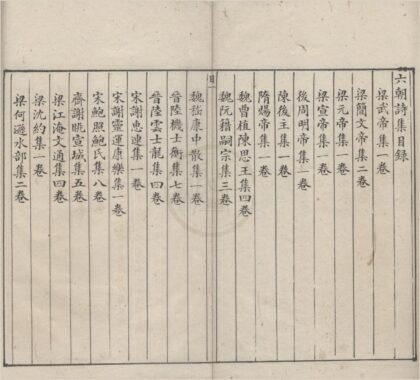 六朝詩集目錄
梁武帝集一卷
梁簡文帝集二卷
梁元帝集一卷
梁宣帝集一卷
後周明帝集一卷
陳後主集一卷
隋煬帝集一卷
魏曹植陳思王集四卷
魏阮籍嗣宗集三卷
目
一
魏嵇康中散集一卷
晉陸機士衡集七卷
晉陸雲士龍集四卷
宋謝惠連集一卷
宋謝靈運康樂集一卷
宋鮑照鮑氏集八卷
齊謝朓宣城集五卷
梁江淹文通集四卷
梁沈約集一卷
梁何遜水部集二卷